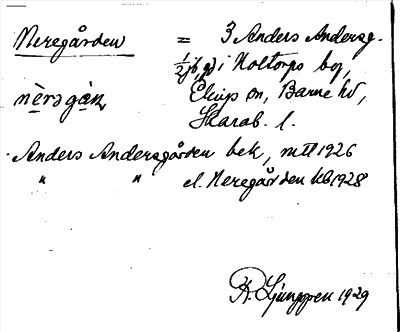 Neregården = 3 Anders Andersg.
1/2 i Holtorps by,
nèrsgàn, Elings sn, Barne hd,
Skarab. l.
Anders Andersgården bek, mtl 1926
" " el. Neregården kb 1928
R. Ljunggren 1929